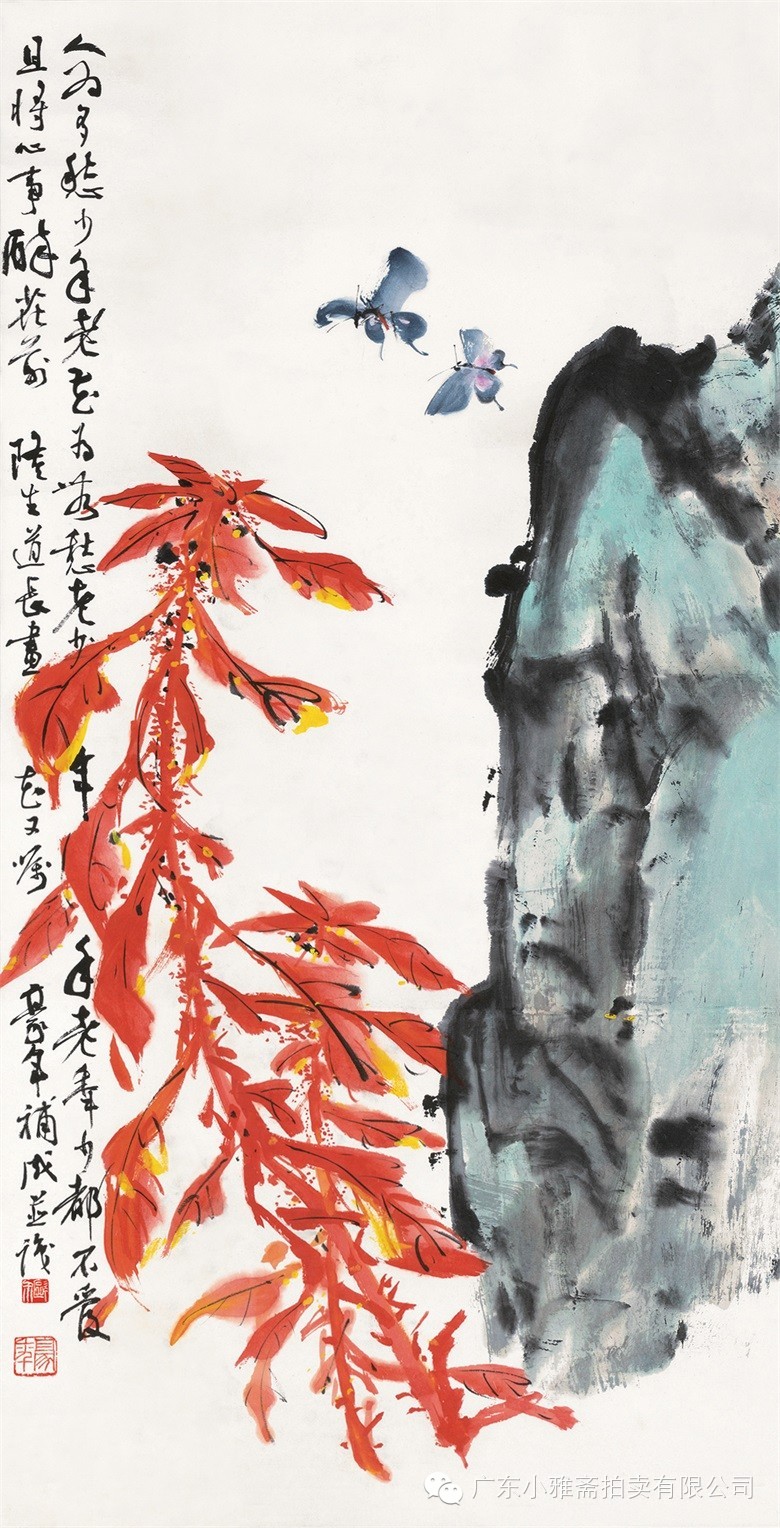 人為多愁少年老花為無愁老少年年老年少都不
且將心事醉花前 陸生道長畫花又囑 豪年補成並識
豪年
广东小雅斋拍卖有限公司